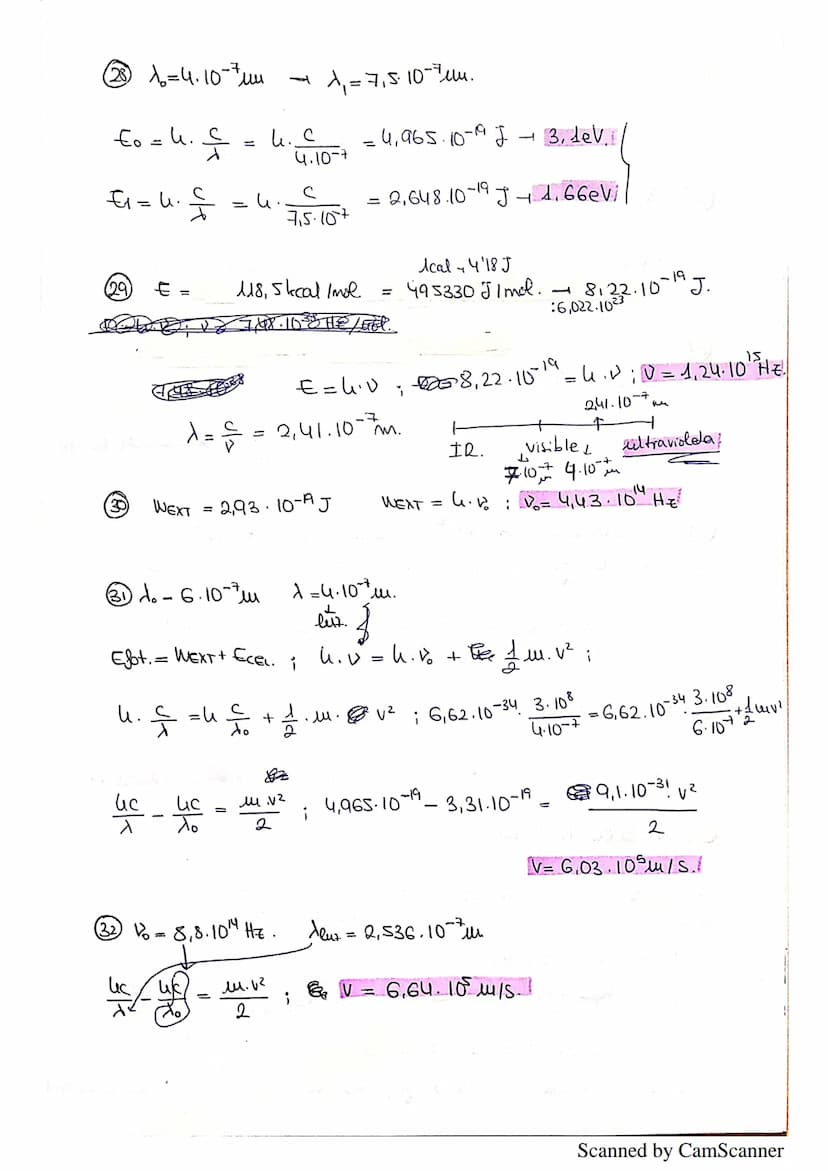 28 λ₀=4·10⁻⁷m → λ₁=7,5·10⁻⁷m.
E₀ = h· c/λ = h· c/4·10⁻⁷ = 4,965·10⁻¹⁹ J → 3,1eV.
E₁ = h· c/λ = h· c/7,5·10⁻⁷ = 2,648·10⁻¹⁹ J → 1,66eV
1cal → 4'18 J
29 E = 118,5kcal/mol = 495330 J/mol. → 8,22·10⁻¹⁹ J.
:6,022·10²³
E=h·ν ; 8,22·10⁻¹⁹ = h·ν ; ν = 1,24·10¹⁵ Hz.
2,41·10⁻⁷m
λ = c/ν = 2,41·10⁻⁷m.
IR. visible ultravioleta
7·10⁻⁷m 4·10⁻⁷m
30 WEXT = 2,93·10⁻¹⁹ J WEXT = h·ν₀ ; ν₀ = 4,43·10¹⁴ Hz
31 λ₀ - 6·10⁻⁷m λ=4·10⁻⁷m.
luz.
Efot. = WEXT + Ecel. ; h·ν = h·ν₀ + 1/2 m·v² ;
h· c/λ = h c/λ₀ + 1/2 ·m· v² ; 6,62·10⁻³⁴· 3·10⁸/4·10⁻⁷ = 6,62·10⁻³⁴· 3·10⁸/6·10⁻⁷ + 1/2 mv²
hc/λ - hc/λ₀ = m v²/2 ; 4,965·10⁻¹⁹ - 3,31·10⁻¹⁹ = 9,1·10⁻³¹· v²/2
V= 6,03·10⁵m/s.
32 ν₀ = 8,8·10¹⁴ Hz. λluz = 2,536·10⁻⁷m
hc/λ - hc/λ₀ = m·v²/2 ; V = 6,64·10⁵ m/s.
Scanned by CamScanner